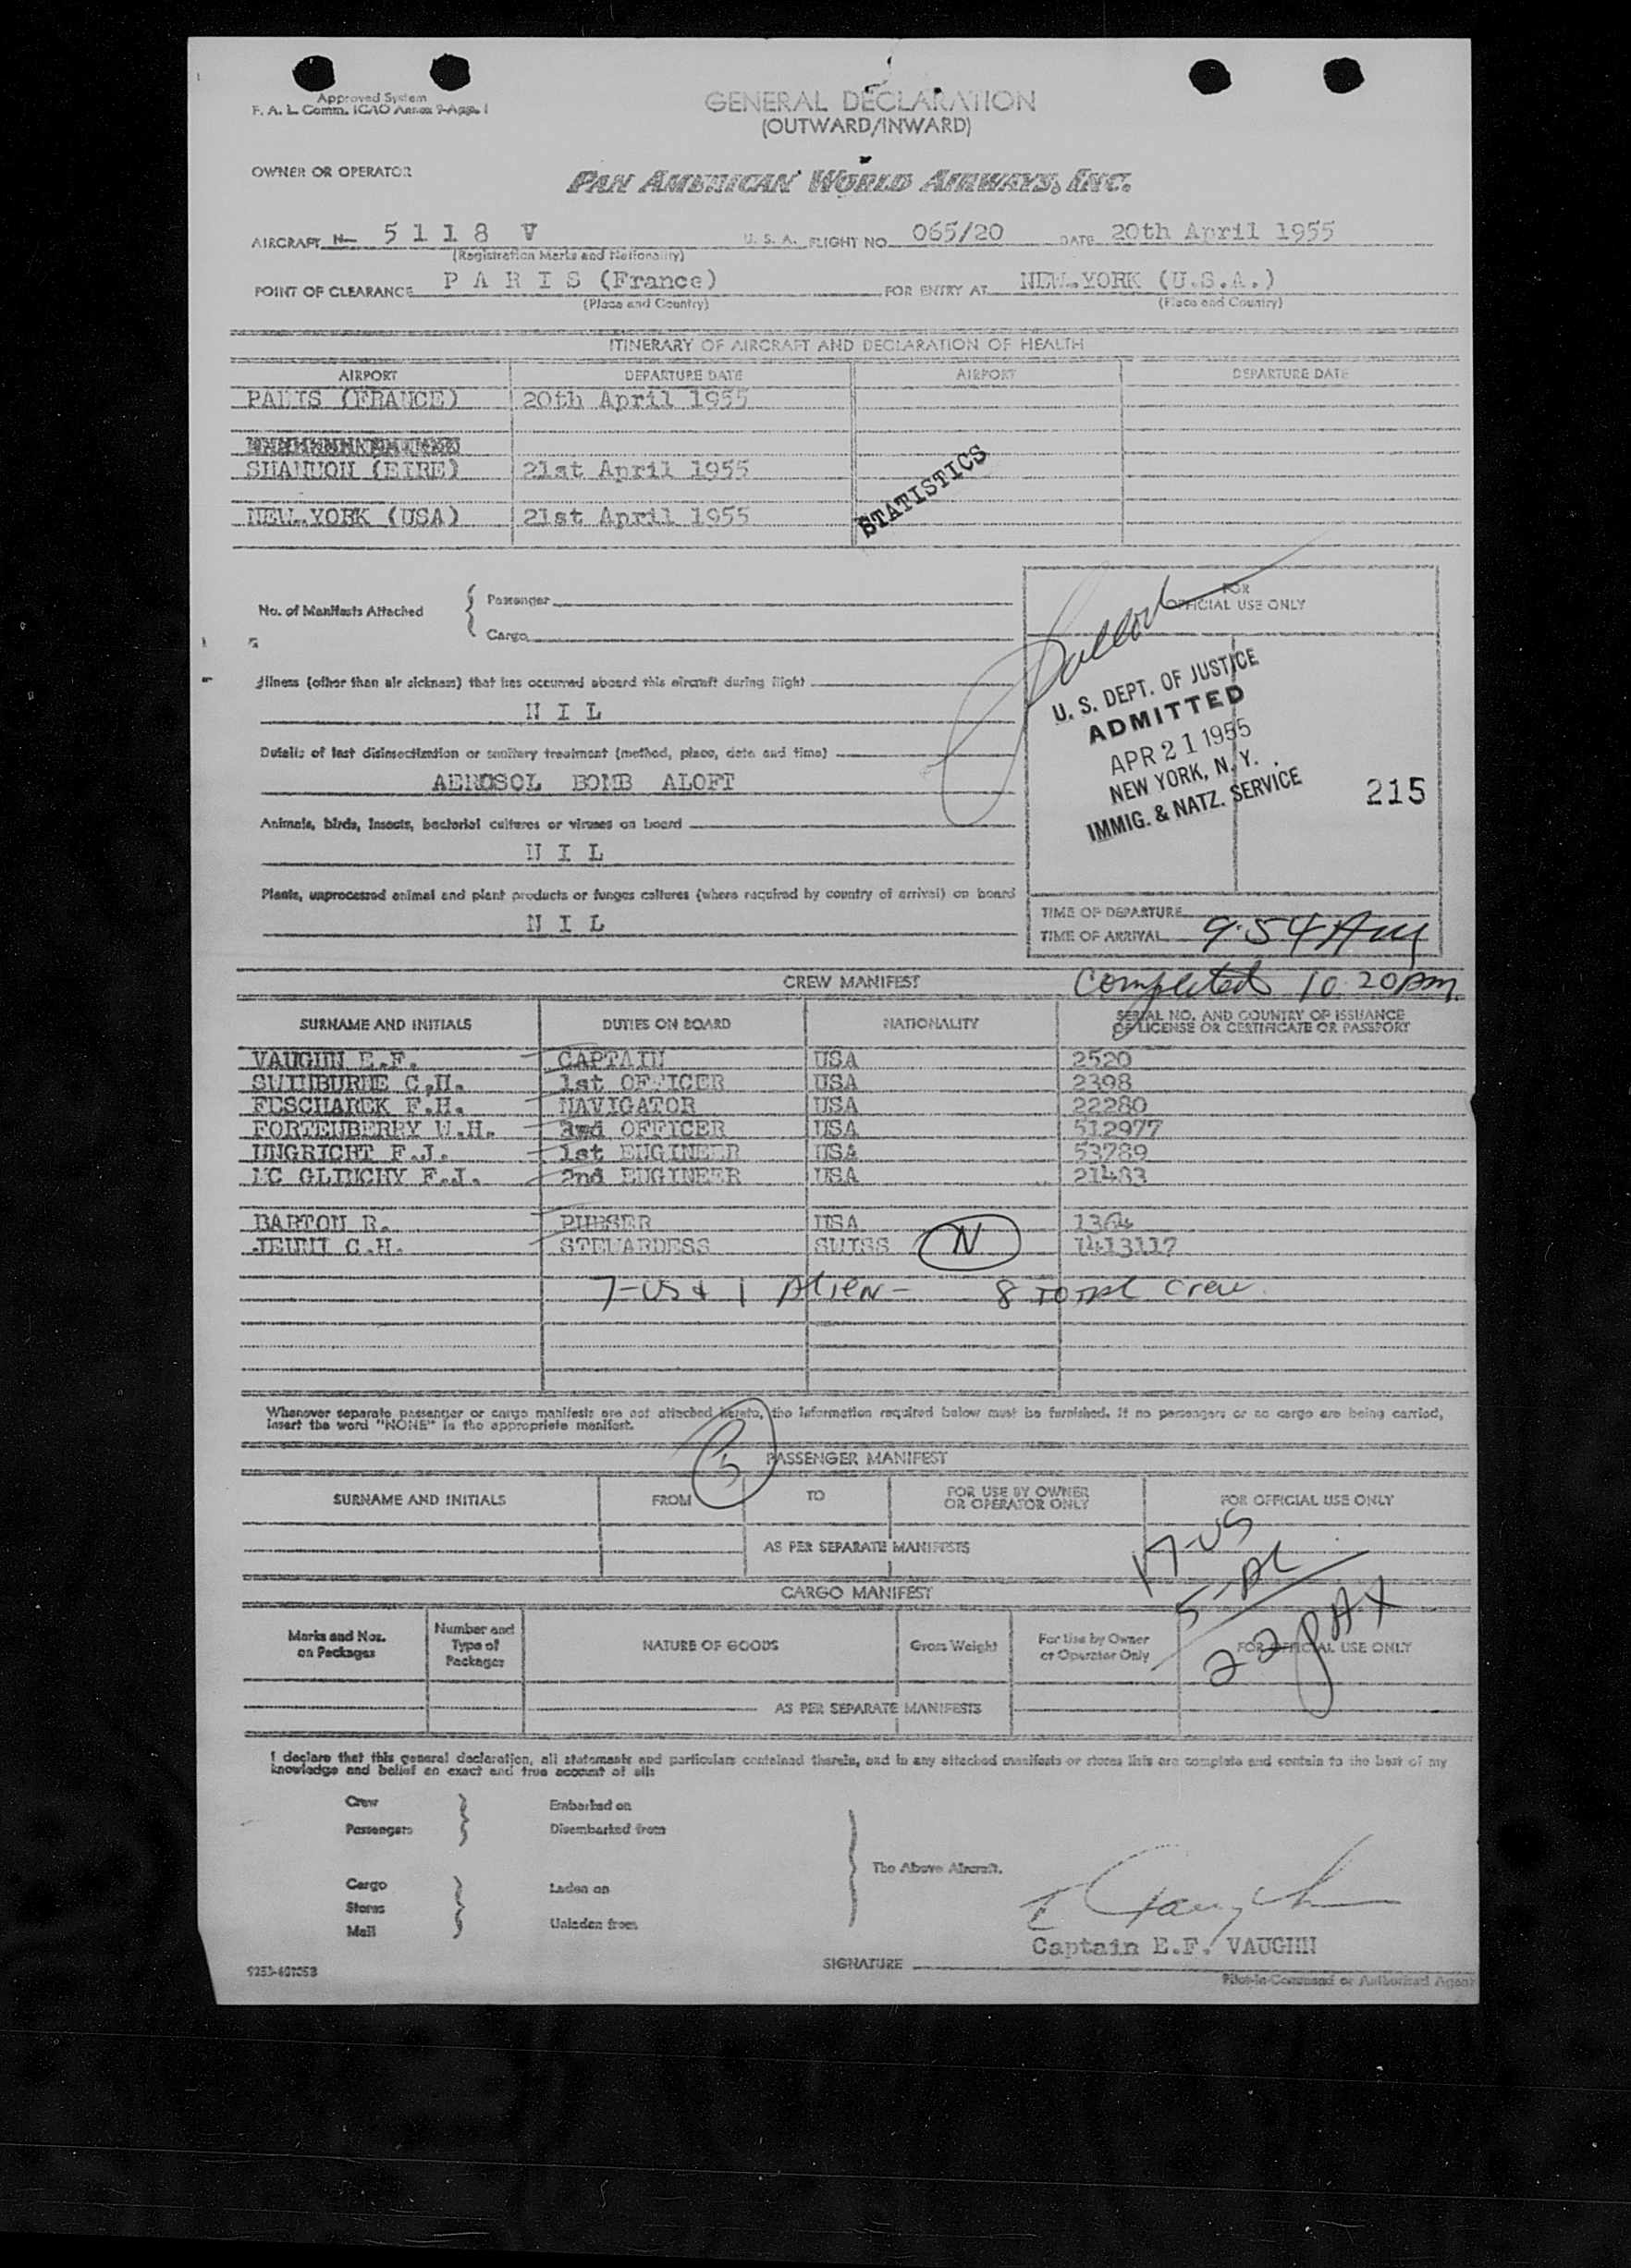 Approved System
F. A. L. Comm. ICAO Annex 9-App. 1
GENERAL DECLARATION
(OUTWARD/INWARD)
OWNER OR OPERATOR
PAN AMERICAN WORLD AIRWAYS, INC.
AIRCRAFT N- 5 1 1 8 V U. S. A. FLIGHT NO. 065/20 DATE 20th April 1955
(Registration Marks and Nationality)
POINT OF CLEARANCE P A R I S (France) FOR ENTRY AT NEW.YORK (U.S.A.)
(Place and Country) (Place and Country)
ITINERARY OF AIRCRAFT AND DECLARATION OF HEALTH
AIRPORT DEPARTURE DATE AIRPORT DEPARTURE DATE
PARIS (FRANCE) 20th April 1955
SHANNON (EIRE) 21st April 1955
NEW.YORK (USA) 21st April 1955
STATISTICS
No. of Manifests Attached { Passenger
Cargo
FOR
OFFICIAL USE ONLY
Illness (other than air sickness) that has occurred aboard this aircraft during flight
N I L
Details of last disinsectization or sanitary treatment (method, place, date and time)
AEROSOL BOMB ALOFT
Animals, birds, insects, bacterial cultures or viruses on board
N I L
Plants, unprocessed animal and plant products or fungus cultures (where required by country of arrival) on board
N I L
U. S. DEPT. OF JUSTICE
ADMITTED
APR 21 1955
NEW YORK, N. Y.
IMMIG. & NATZ. SERVICE
215
TIME OF DEPARTURE
TIME OF ARRIVAL 9:54 AM
CREW MANIFEST Completed 10:20 am.
SURNAME AND INITIALS DUTIES ON BOARD NATIONALITY SERIAL NO. AND COUNTRY OF ISSUANCE
OF LICENSE OR CERTIFICATE OR PASSPORT
VAUGHN E.F. CAPTAIN USA 2520
SWINBURNE C.H. 1st OFFICER USA 2398
FESCHAREK F.H. NAVIGATOR USA 22280
FORTENBERRY W.H. 2nd OFFICER USA 512977
UNGRICHT F.J. 1st ENGINEER USA 53789
MC GLINCHY F.J. 2nd ENGINEER USA 21483
BARTON R. PURSER USA 1364
JENNI C.H. STEWARDESS SWISS N 1413117
7-US & 1 Alien - 8 Total Crew
Whenever separate passenger or cargo manifests are not attached hereto, the information required below must be furnished. If no passengers or no cargo are being carried,
insert the word "NONE" in the appropriate manifest.
5
PASSENGER MANIFEST
SURNAME AND INITIALS FROM TO FOR USE BY OWNER
OR OPERATOR ONLY FOR OFFICIAL USE ONLY
AS PER SEPARATE MANIFESTS
17-US
5-AL
22 PAX
CARGO MANIFEST
Marks and Nos.
on Packages Number and
Type of
Packages NATURE OF GOODS Gross Weight For Use by Owner
or Operator Only FOR OFFICIAL USE ONLY
AS PER SEPARATE MANIFESTS
I declare that this general declaration, all statements and particulars contained therein, and in any attached manifests or stores lists are complete and contain to the best of my
knowledge and belief an exact and true account of all:
Crew Embarked on
Passengers Disembarked from
The Above Aircraft.
Cargo Laden on
Stores
Mail Unladen from
E F Vaughn
Captain E.F. VAUGHN
SIGNATURE
Pilot-in-Command or Authorized Agent